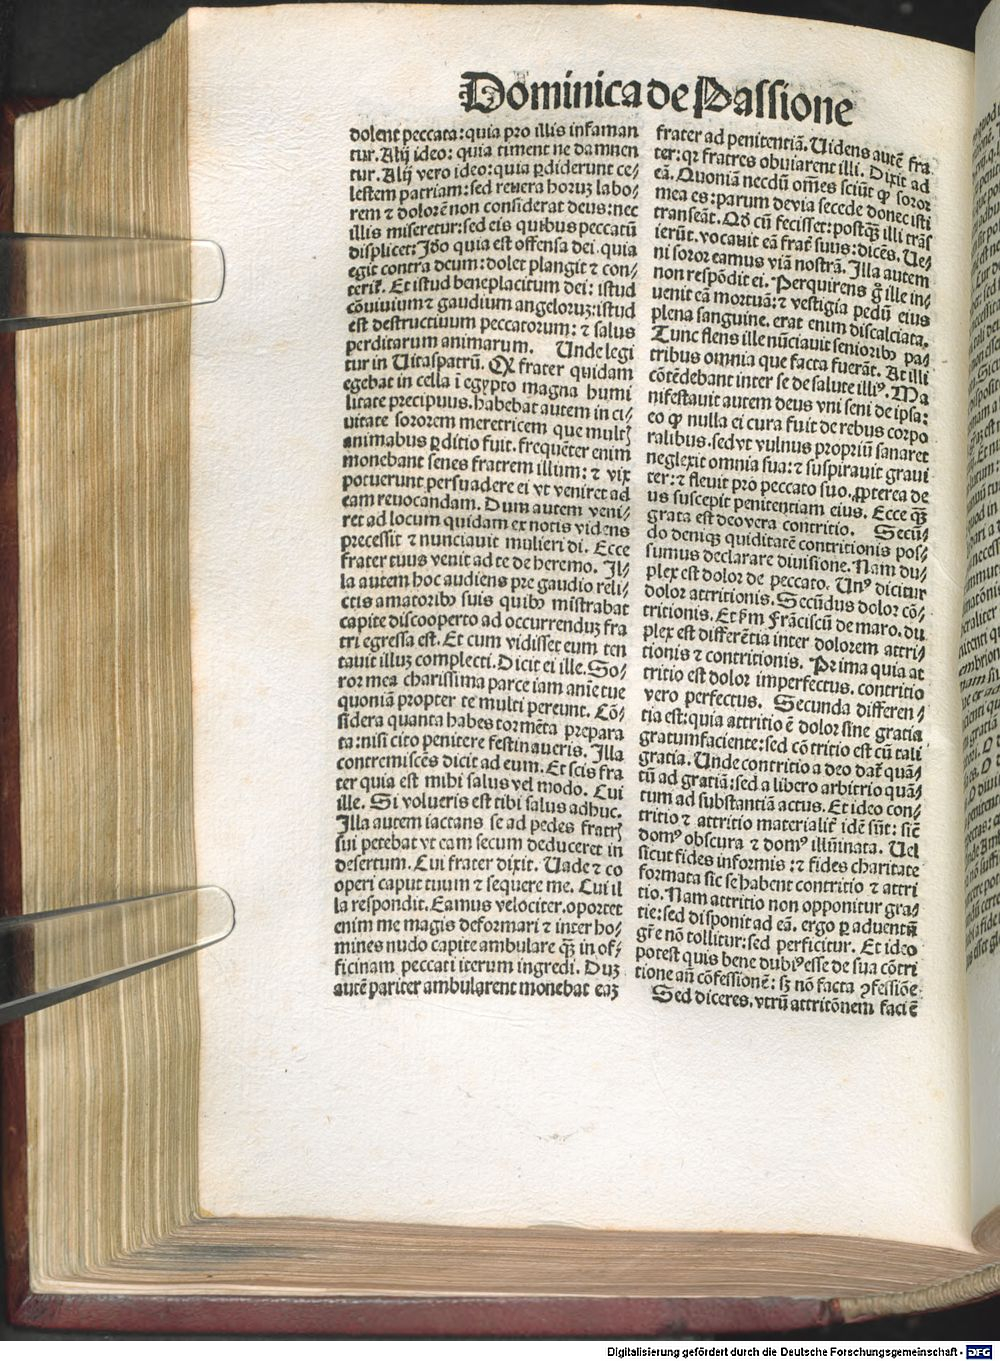 Dominica de Passione
dolent peccata: quia pro illis infaman
tur. Alij ideo: quia timent ne damnen
tur. Alij vero ideo: quia ꝑdiderunt ce⸗
lestem patriam: sed reuera horuꝫ labo⸗
rem ⁊ dolorē non considerat deus: nec
illis miseretur: sed eis quibus peccatū
displicet: Idō quia est offensa dei. quia
egit contra deum: dolet plangit ⁊ con⸗
terit᷑. Et istud beneplacitum dei: istud
cōuiuium ⁊ gaudium angeloruꝫ: istud
est destructiuum peccatorum: ⁊ salus
perditarum animarum. Unde legi
tur in Uitaspatrū. Qꝫ frater quidam
egebat in cella ī egypto magna humi
litate precipuus. habebat autem in ci⸗
uitate sororem meretricem que multꝭ
animabus ꝑditio fuit. frequēter enim
monebant senes fratrem illum: ⁊ vix
potuerunt persuadere ei vt veniret ad
eam reuocandam. Dum autem veni⸗
ret ad locum quidam ex notis videns
precessit ⁊ nunciauit mulieri di. Ecce
frater tuus venit ad te de heremo. Il⸗
la autem hoc audiens pre gaudio reli⸗
ctis amatoribꝰ suis quibꝰ mistrabat
capite discooperto ad occurrenduꝫ fra
tri egressa est. Et cum vidisset eum ten
tauit illuꝫ complecti. Dicit ei ille. So⸗
ror mea charissima parce iam anie tue
quoniā propter te multi pereunt. Cō⸗
sidera quanta habes tormēta prepara
ta: nisi cito penitere festinaueris. Illa
contremiscēs dicit ad eum. Et scis fra
ter quia est mihi salus vel modo. Cui
ille. Si volueris est tibi salus adhuc.
Illa autem iactans se ad pedes fratrꝭ
sui petebat vt eam secum deduceret in
desertum. Cui frater dixit. Uade ⁊ co
operi caput tuum ⁊ sequere me. Cui il
la respondit. Eamus velociter. oportet
enim me magis deformari ⁊ inter ho⸗
mines nudo capite ambulare qꝫ̄ in of⸗
ficinam peccati iterum ingredi. Duꝫ
autē pariter ambularent monebat eaꝫ
frater ad penitentiā. Uidens autē fra
ter: qꝛ fratres obuiarent illi. Dixit ad
eā. Quoniā necdū om̄es sciūt ꝙ soror
mea es: parum deuia secede donec isti
transeāt. Qd̓ cū fecisset: postqꝫ̄ illi trās
ierūt. vocauit eā frat᷑ suus: dicēs. Ue⸗
ni soror eamus viā nostrā. Illa autem
non respōdit ei. Perquirens gͦ ille in⸗
uenit eā mortuā: ⁊ vestigia pedū eius
plena sanguine. erat enim discalciata.
Tunc flens ille nūciauit senioribꝰ pa⸗
tribus omnia que facta fuerāt. At illi
cōtēdebant inter se de salute illiꝰ. Ma
nifestauit autem deus vni seni de ipsa:
eo ꝙ nulla ei cura fuit de rebus corpo
ralibus. sed vt vulnus propriū sanaret
neglexit omnia sua: ⁊ suspirauit graui
ter: ⁊ fleuit pro peccato suo. ꝓpterea de
us suscepit penitentiam eius. Ecce qꝫ̄
grata est deo vera contritio. Secū⸗
do deniqꝫ quiditatē contritionis pos⸗
sumus declarare diuisione. Nam du⸗
plex est dolor de peccato. Unꝰ dicitur
dolor attritionis. Secūdus dolor cō⸗
tritionis. Et ẜm Frāciscū de maro. du
plex est differētia inter dolorem attri⸗
tionis ⁊ contritionis. Prima quia at
tritio est dolor imperfectus. contritio
vero perfectus. Secunda differen⸗
tia est: quia attritio ē dolor sine gratia
gratumfaciente: sed cōtritio est cū tali
gratia. Unde contritio a deo dat᷑ quā⸗
tū ad gratiā: sed a libero arbitrio quā⸗
tum ad substantiā actus. Et ideo con⸗
tritio ⁊ attritio materialit᷑ idē sūt: sic̄
domꝰ obscura ⁊ domꝰ illūinata. Uel
sicut fides informis: ⁊ fides charitate
formata sic se habent contritio ⁊ attri
tio. Nam attritio non opponitur gra⸗
tie: sed disponit ad eā. ergo ꝑ aduentū
gr̄e nō tollitur: sed perficitur. Et ideo
potest quis bene dubiꝰ esse de sua cōtri
tione an̄ cōfessionē: sꝫ nō facta ꝯfessiōe
Sed diceres. vtrū attritōnem faciē
Digitalisierung gefördert durch die Deutsche Forschungsgemeinschaft - DFG